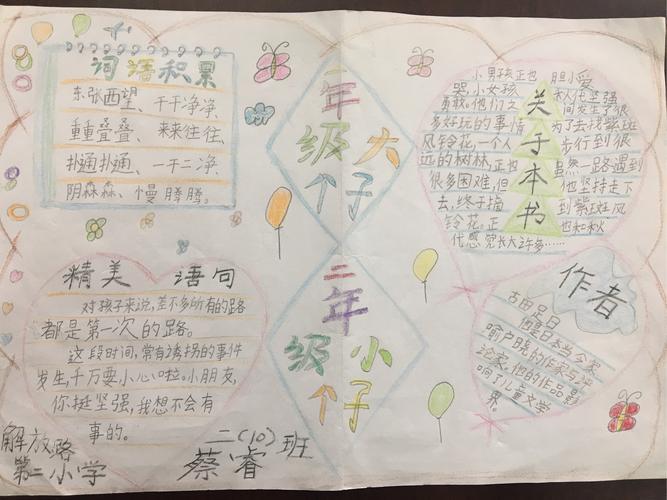 词语积累
东张西望、干干净净、
重重叠叠、来来往往、
扑通扑通、一干二净、
阴森森、慢腾腾。
一年级大个子
二年级小个子
关于本书
小男孩正也胆小爱
哭,小女孩秋代坚强
勇敢。他们之间发生了很
多好玩的事情,为了去找紫斑
风铃花,一个人步行到很
远的树林,正也虽然一路遇到
很多困难,但他坚持走下
去,终于摘到紫斑风
铃花。正也和秋
代感觉长大许多……
精美语句
对孩子来说,差不多所有的路
都是第一次的路。
这段时间,常有诱拐的事件
发生,千万要小心啦。小朋友,
你挺坚强,我想不会有
事的。
作者
古田足日
他是日本当今家
喻户晓的作家与评
论家。他的作品影
响了儿童文学
界。
解放路
第二小学
二(10)班
蔡睿